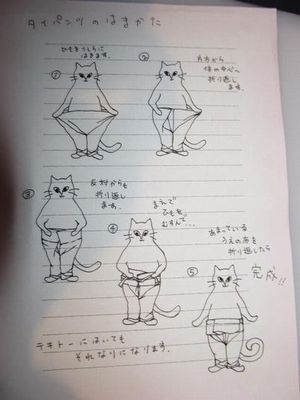 タイパンツのはきかた
①
ひもをうしろに
はきます。
②
片方から
体の中心へ
折り返し
ます。
③
反対からも
折り返し
ます。
④
まえで
ひもを
むすんで…
⑤
あまっている
うえの布を
折り返したら
完成!!
テキトーにはいても
それなりになります。